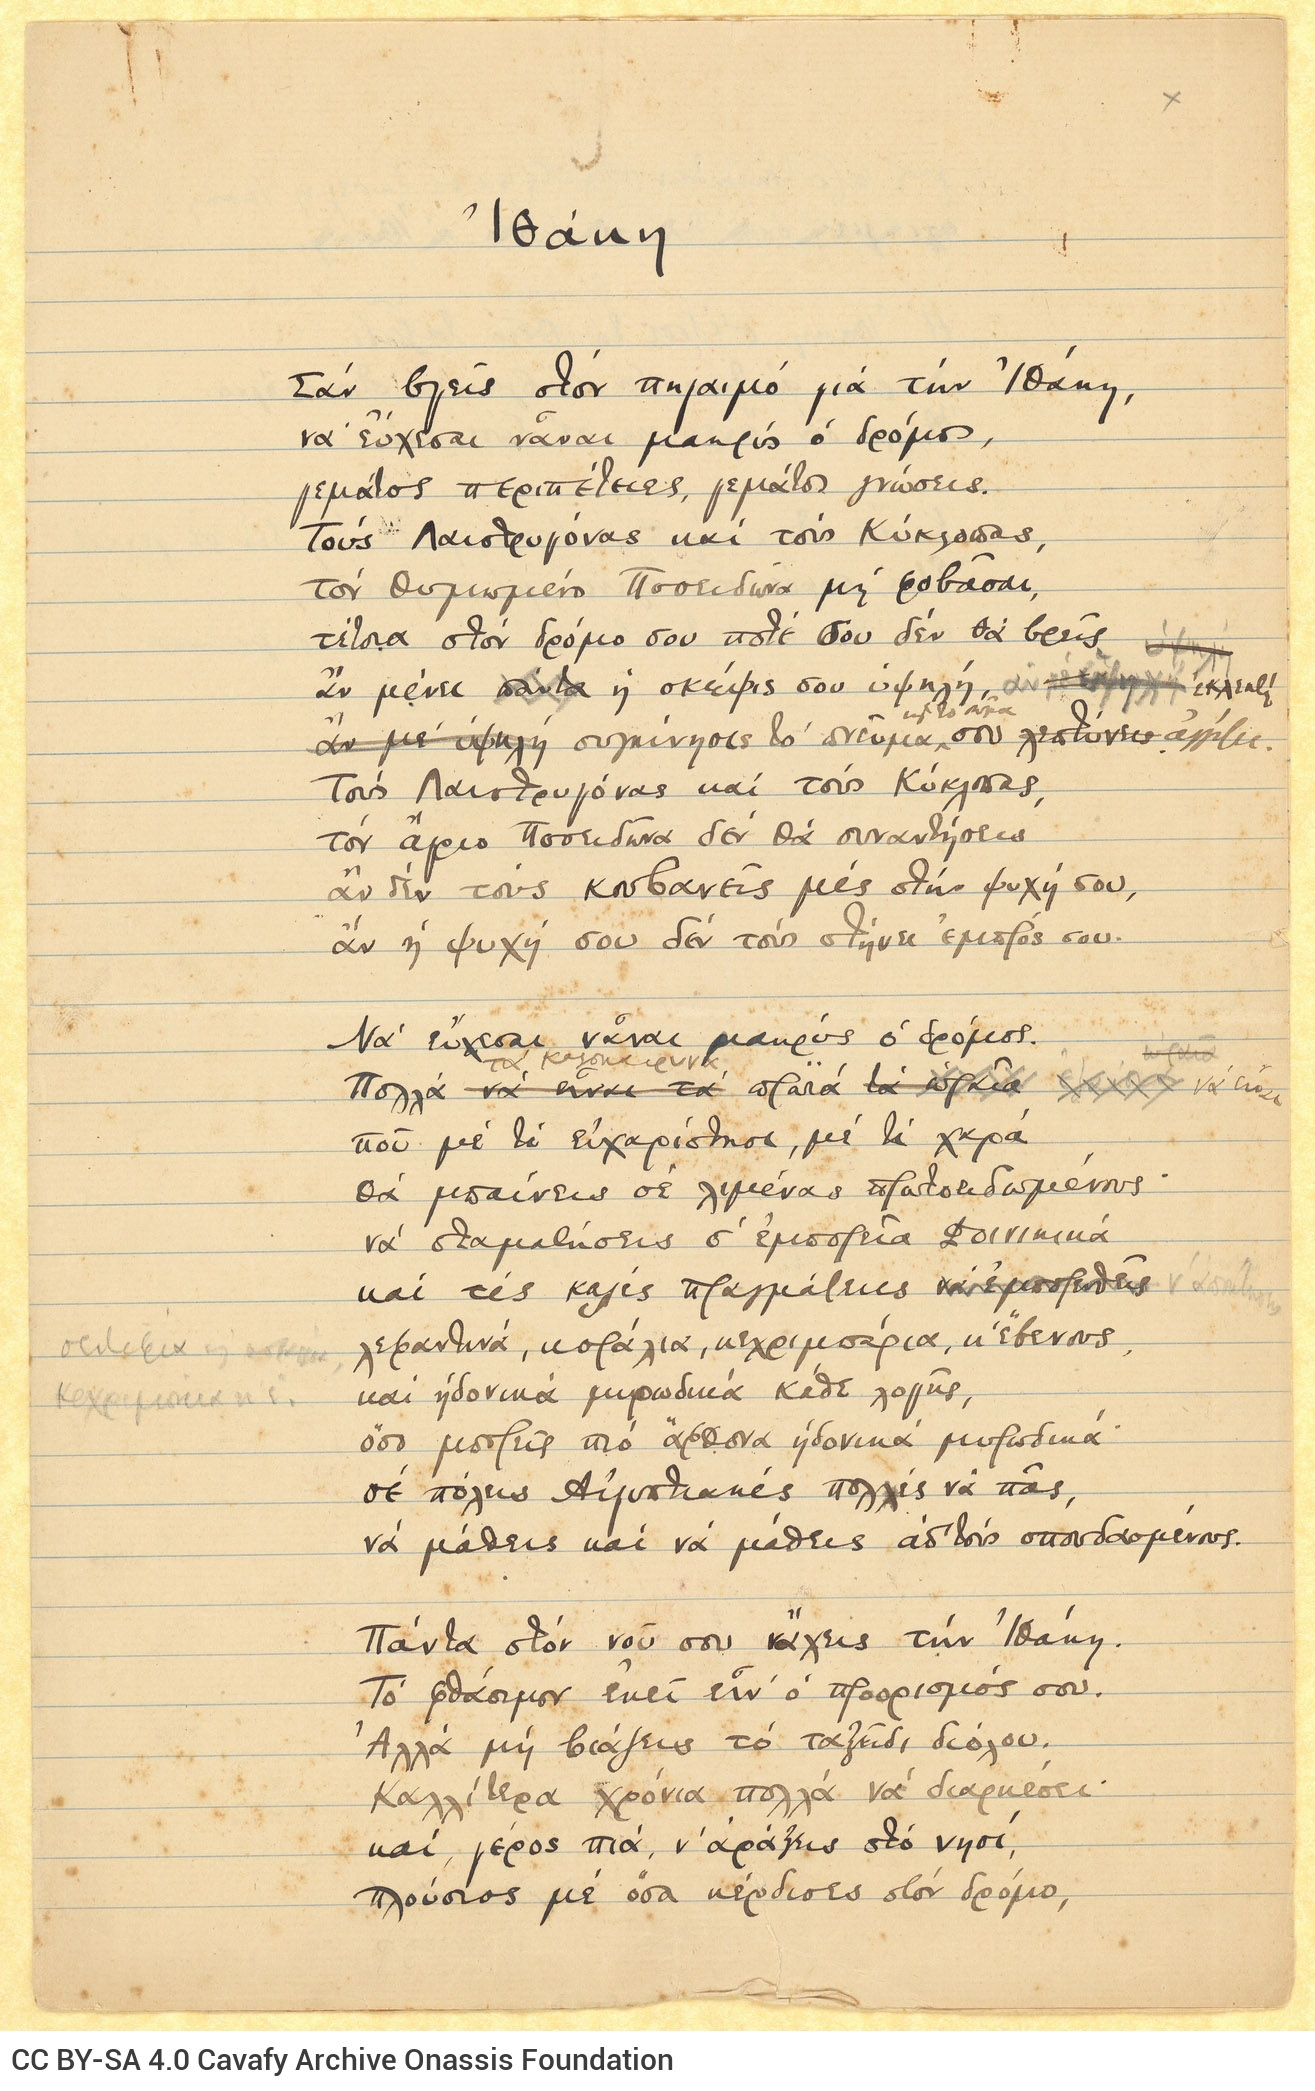 Ἰθάκη
Σάν βγεῖς στόν πηγαιμό γιά τήν Ἰθάκη,
νά εὔχεσαι νἆναι μακρύς ὁ δρόμος,
γεμάτος περιπέτειες, γεμάτος γνώσεις.
Τούς Λαιστρυγόνας καί τούς Κύκλωπας,
τόν θυμωμένο Ποσειδῶνα μή φοβᾶσαι,
τέτοια στόν δρόμο σου ποτέ σου δέν θά βρεῖς
ὑψηλή
ἄν μένει πάντα ἡ σκέψις σου ὑψηλή, ἄν ἐκλεκτή
κ τό σῶμα
ἄν μέ ὑψηλή συγκίνησις τό πνεῦμα σου λεπτύνει ἀγγίζει.
Τούς Λαιστρυγόνας καί τούς Κύκλωπας,
τόν ἄγριο Ποσειδῶνα δέν θά συναντήσεις
ἄν δέν τούς κουβανεῖς μές στήν ψυχή σου,
ἄν ἡ ψυχή σου δέν τούς στήνει ἐμπρός σου.
Νά εὔχεσαι νἆναι μακρύς ὁ δρόμος.
τά καλοκαιρινά ὡραῖα
Πολλά νά εἶναι τά πρωϊά τά ὡραῖα νά εἶναι
πού μέ τί εὐχαρίστησι, μέ τί χαρά
θά μπαίνεις σέ λιμένας πρωτοειδωμένους·
νά σταματήσεις σ' ἐμπορεῖα Φοινικικά
καί τές καλές πραγμάτειες νά ἐμπορευθεῖς ν' ἀποκτήσεις
σεντέφια
λεφαντινά, κοράλια, κεχριμπάρια, κ' ἔβενους,
κεχριμπάρια κ' ἔ.
καί ἡδονικά μυρωδικά κάθε λογῆς,
ὅσο μπορεῖς πιό ἄφθονα ἡδονικά μυρωδικά·
σέ πόλεις Αἰγυπτιακές πολλές νά πᾶς,
νά μάθεις καί νά μάθεις ἀπ' τούς σπουδασμένους.
Πάντα στόν νοῦ σου νἄχεις τήν Ἰθάκη.
Τό φθάσιμον ἐκεῖ εἶν' ὁ προορισμός σου.
Ἀλλά μή βιάζεις τό ταξεῖδι διόλου.
Καλλίτερα χρόνια πολλά νά διαρκέσει·
καί, γέρος πιά, ν' ἀράξεις στό νησί,
πλούσιος μέ ὅσα κέρδισες στόν δρόμο,
CC BY-SA 4.0 Cavafy Archive Onassis Foundation